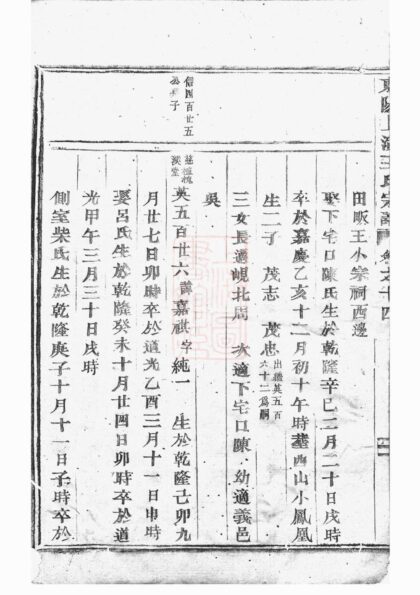 王氏宗譜 卷之十四
田畈王小宗祠西邊
娶下宅口陳氏生於乾隆辛巳二月二十日戌時
卒於嘉慶乙亥十二月初十午時葬西山小鳳凰
生二子 茂志 茂忠 出繼英五百六十二爲嗣
三女長適峴北周 次適下宅口陳 幼適義邑
吳
信四百廿五 子
英五百廿六 諱嘉祺字純一 生於乾隆己卯九
月廿七日卯時卒於道光乙酉三月十一日申時
娶呂氏生於乾隆癸未十月廿四日卯時卒於道
光甲午三月三十日戌時
側室柴氏生於乾隆庚子十月十一日子時卒於